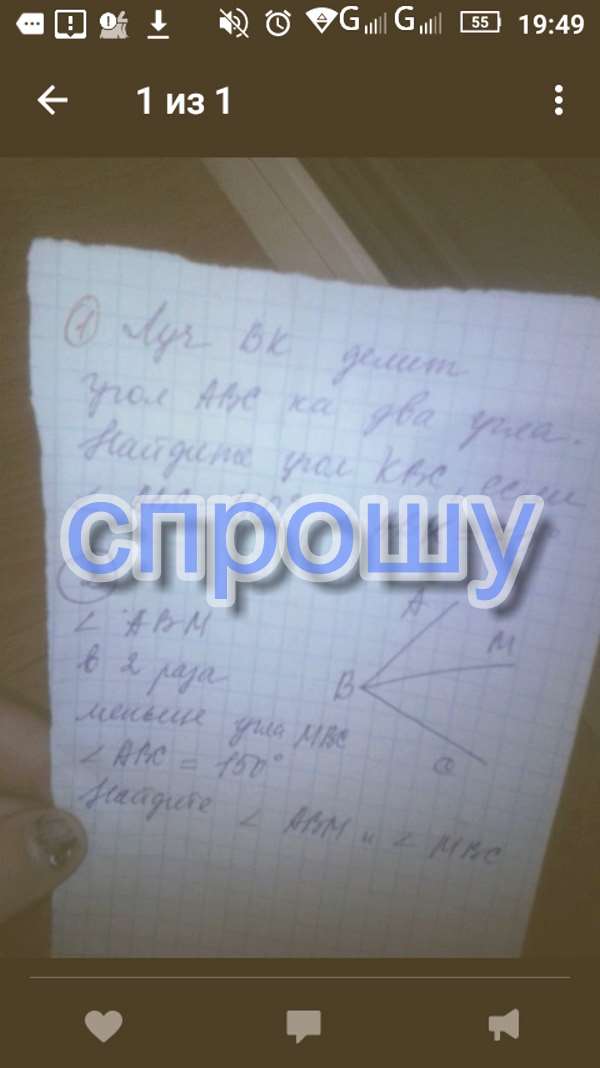 55
19:49
1 из 1
1 Луч ВК делит
угол АВС на два угла.
Найдите угол КВС, если
спрошу
∠ АВМ
в 2 раза
меньше угла МВС
∠ АВС = 150°
Найдите ∠ АВМ и ∠ МВС
А
М
В
С